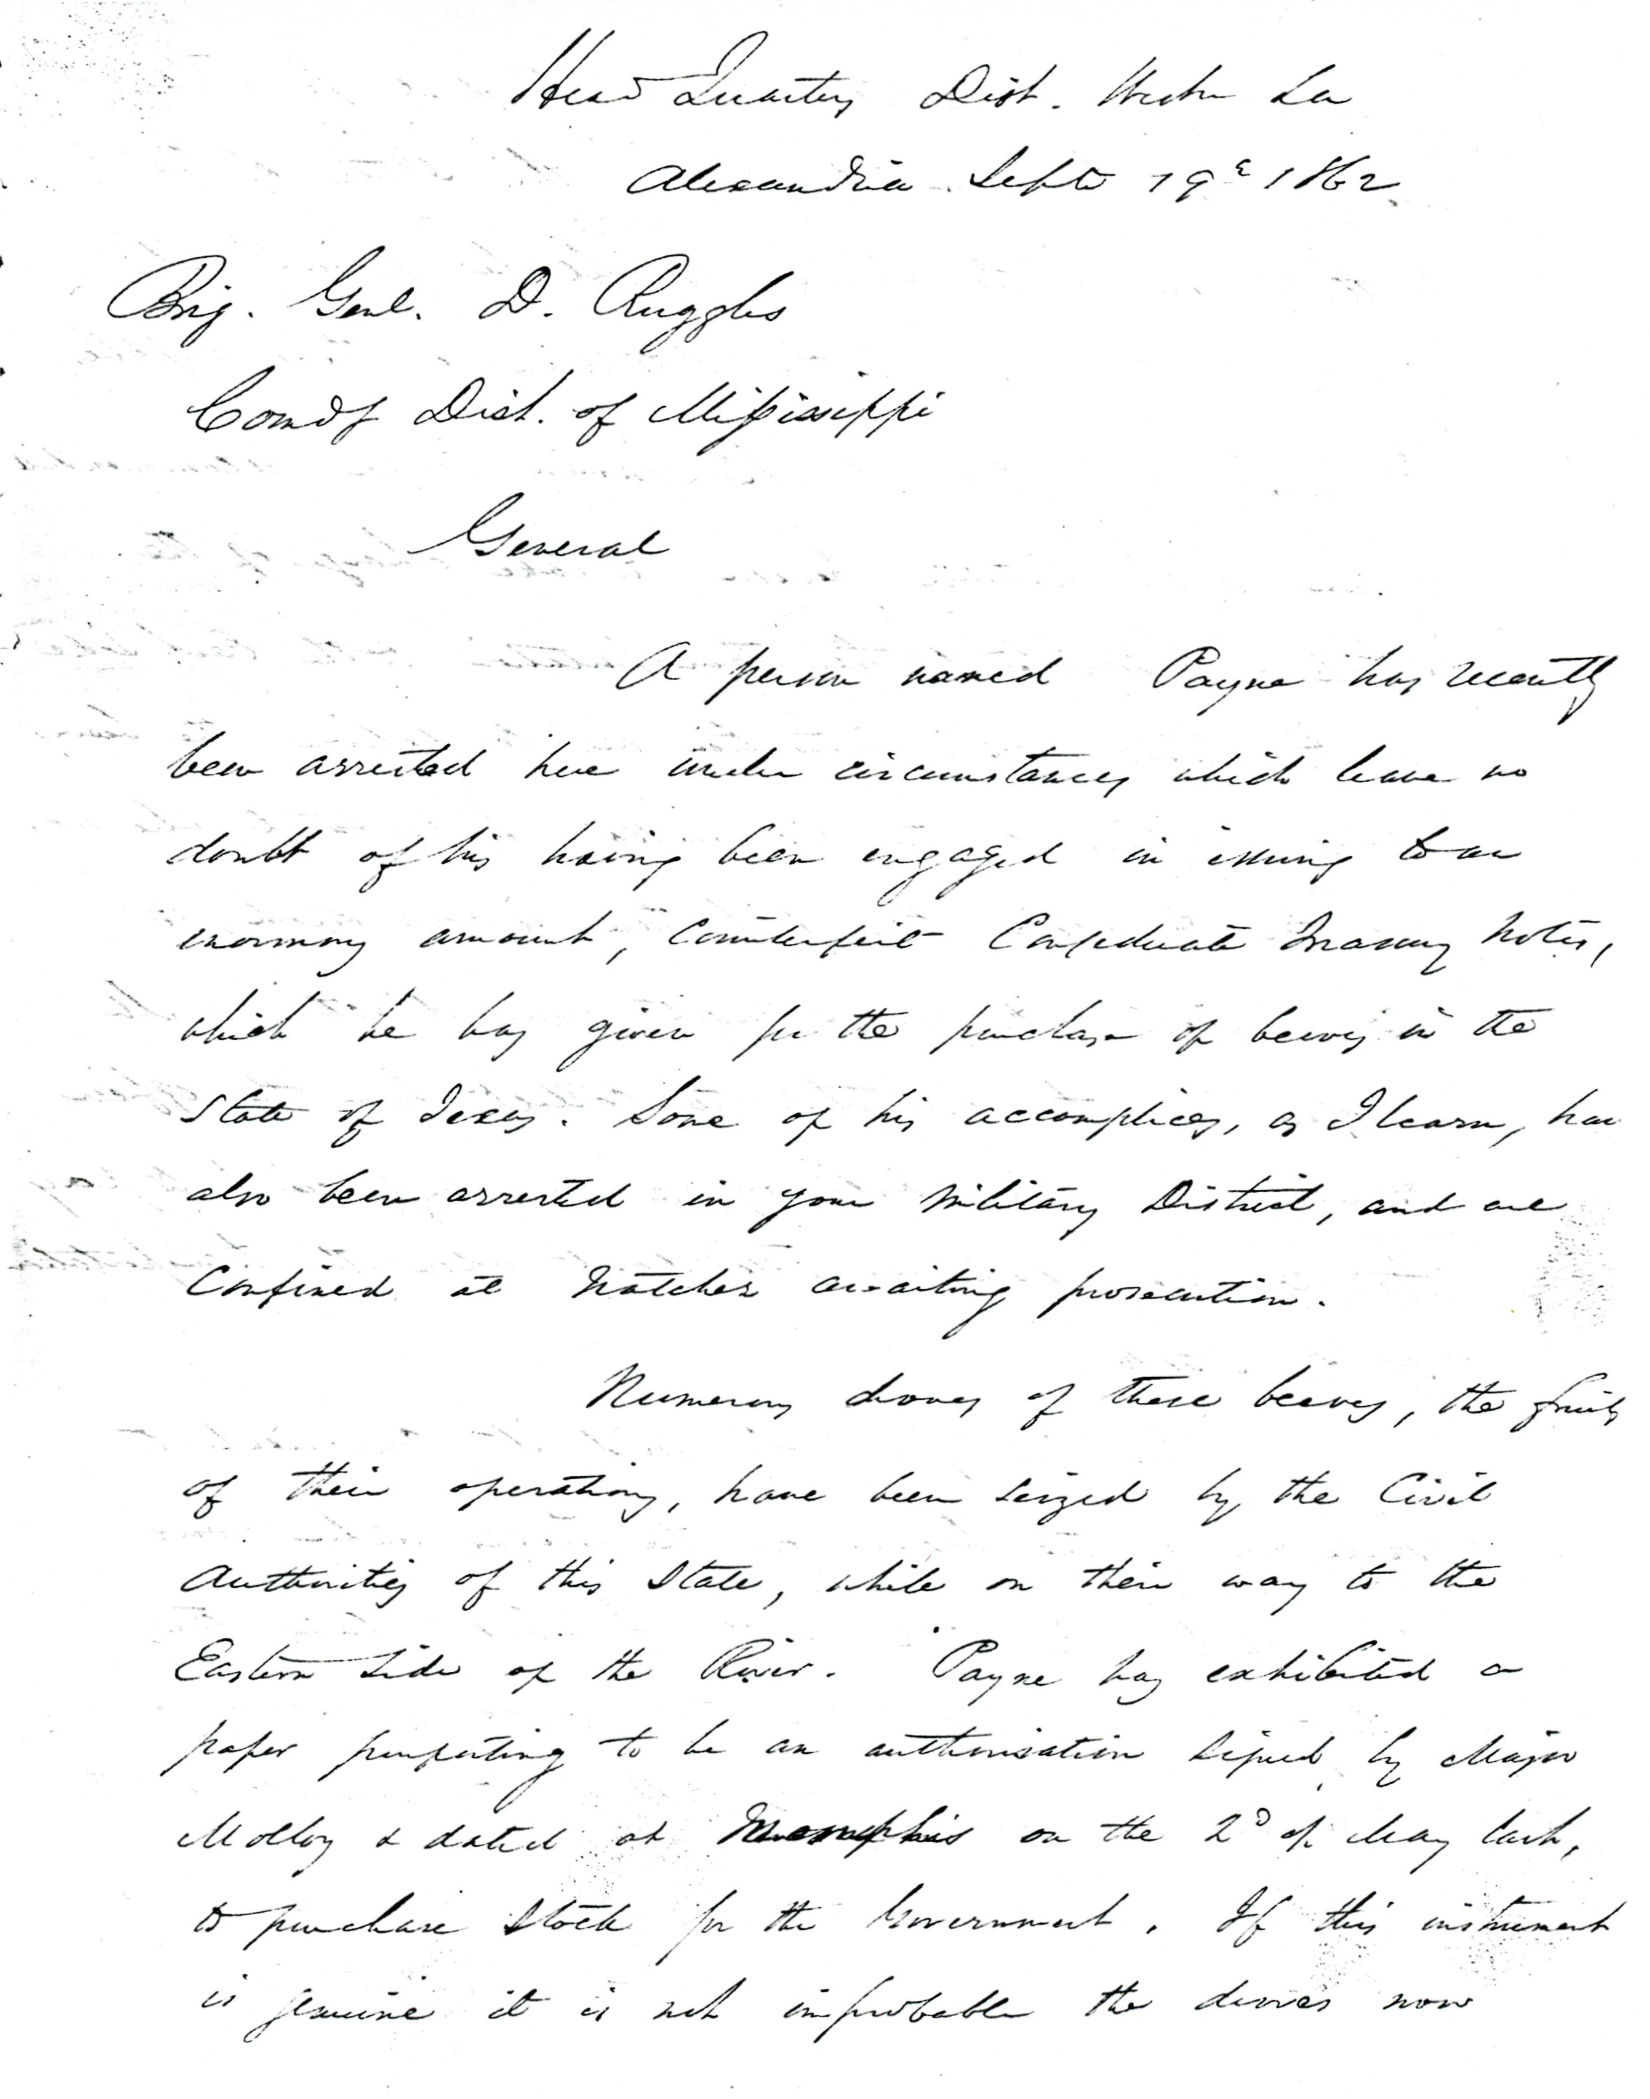 Head Quarters Dist. Westn La
Alexandria Septr 19th 1862.
Brig. Genl. D. Ruggles
Comdg Dist. of Mississippi
General
A person named Payne has recently
been arrested here under circumstances which leave no
doubt of his having been engaged in issuing to an
enormous amount, Counterfeit Confederate Treasury Notes,
which he has given for the purchase of beeves in the
State of Texas. Some of his accomplices, as I learn, have
also been arrested in your Military District, and are
Confined at Natchez awaiting prosecution.
Numerous droves of these beeves, the fruits
of their operations, have been seized by the Civil
Authorities of this State, while on their way to the
Eastern side of the River. Payne has exhibited a
paper purporting to be an authorisation signed by Major
Molloy & dated at Memphis on the 2d of May last,
to purchase Stock for the Government. If this instrument
is genuine it is not improbable the droves now